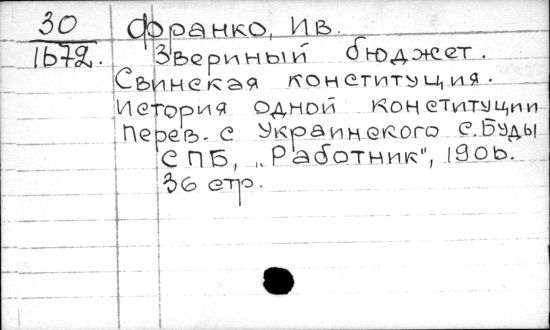 30 Франко, Ив.
1672. Звериный бюджет.
Свинская конституция.
История одной конституции
Перев. с Украинского С. Буды
СПБ, „Работник", 1906.
36 стр.